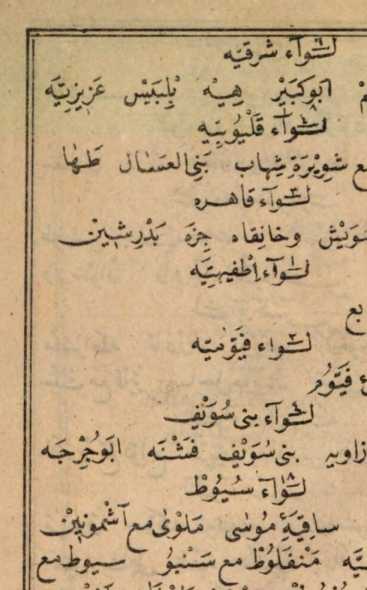 لواء شرقيه
ابوكَبِيْر هِيْه بِلْبَيْس عَزِيزِيَّه
لواء قَلْيُوبِيّه
ع شوِيْرَةِ شِهاب بَنِى العسال طحا
لواء قاهره
سُوَيْش وخانِقاه جِزَه بَدْرشين
لواء اِطْفِيحِيَّه
بع
لواء فَيُّوميّه
ع فَيُّومُ
لواء بنى سُوَيْف
زاويه بنى سُوَيْف فَشْنَه ابُوجُرْجَه
لواء سُيُوطْ
ساقِيَهٔ مُوسٰى مَلْوى مع اَشْمُونَيْن
يَّه مَنْفَلُوْط مع سَنْبُو سيوط مع